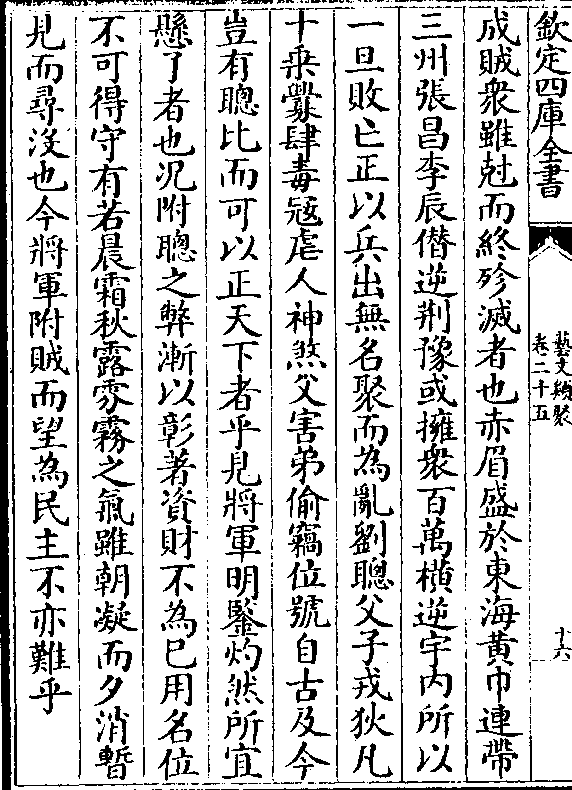 欽定四庫全書
藝文類聚
卷二十五
十六
成賊衆雖尅而終殄滅者也赤眉盛於東海黃巾連帶
三州張昌李辰僭逆荆豫或擁衆百萬橫逆宇内所以
一旦敗亡正以兵出無名聚而為亂劉聰父子戎狄凡
十乘釁肆毒冦虐人神煞父害弟偷竊位號自古及今
豈有聰比而可以正天下者乎見將軍明鑒灼然所宜
懸了者也况附聰之弊漸以彰著資財不為已用名位
不可得守有若晨霜秋露雰霧之氣雖朝凝而夕消暫
見而尋没也今將軍附賊而望為民主不亦難乎